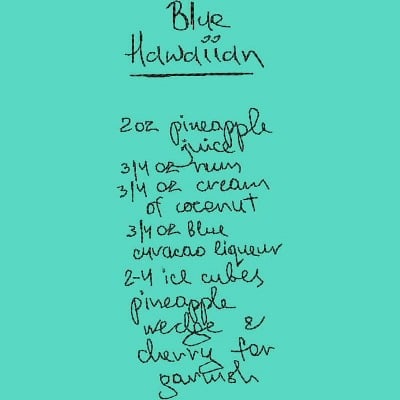 Blue
Hawaiian
2 oz pineapple
juice
3/4 oz rum
3/4 oz cream
of coconut
3/4 oz blue
curacao liqueur
2-4 ice cubes
pineapple
wedge &
cherry for
garnish